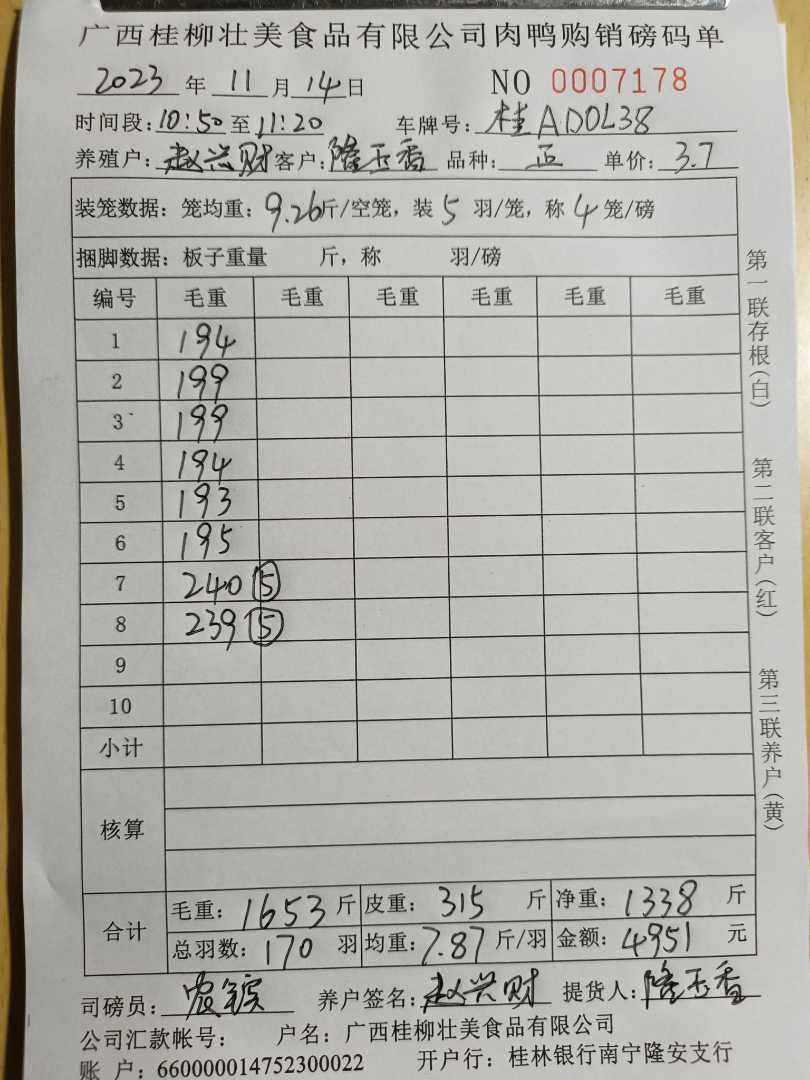 广西桂柳壮美食品有限公司肉鸭购销磅码单
2023 年 11 月 14 日 NO 0007178
时间段:10:50至11:20 车牌号:桂AD0L38
养殖户:赵兴财 客户:隆玉香 品种:正 单价:3.7
装笼数据:笼均重:9.26斤/空笼,装5羽/笼,称4笼/磅
捆脚数据:板子重量 斤,称 羽/磅
编号 毛重 毛重 毛重 毛重 毛重 毛重
1 194
2 199
3 199
4 194
5 193
6 195
7 240 ⑤
8 239 ⑤
9
10
小计
核算
合计 毛重:1653斤 皮重:315斤 净重:1338斤
总羽数:170羽 均重:7.87斤/羽 金额:4951元
司磅员: 养户签名:赵兴财 提货人:隆玉香
公司汇款帐号: 户名:广西桂柳壮美食品有限公司
账 户:660000014752300022 开户行:桂林银行南宁隆安支行
第一联存根(白)
第二联客户(红)
第三联养户(黄)